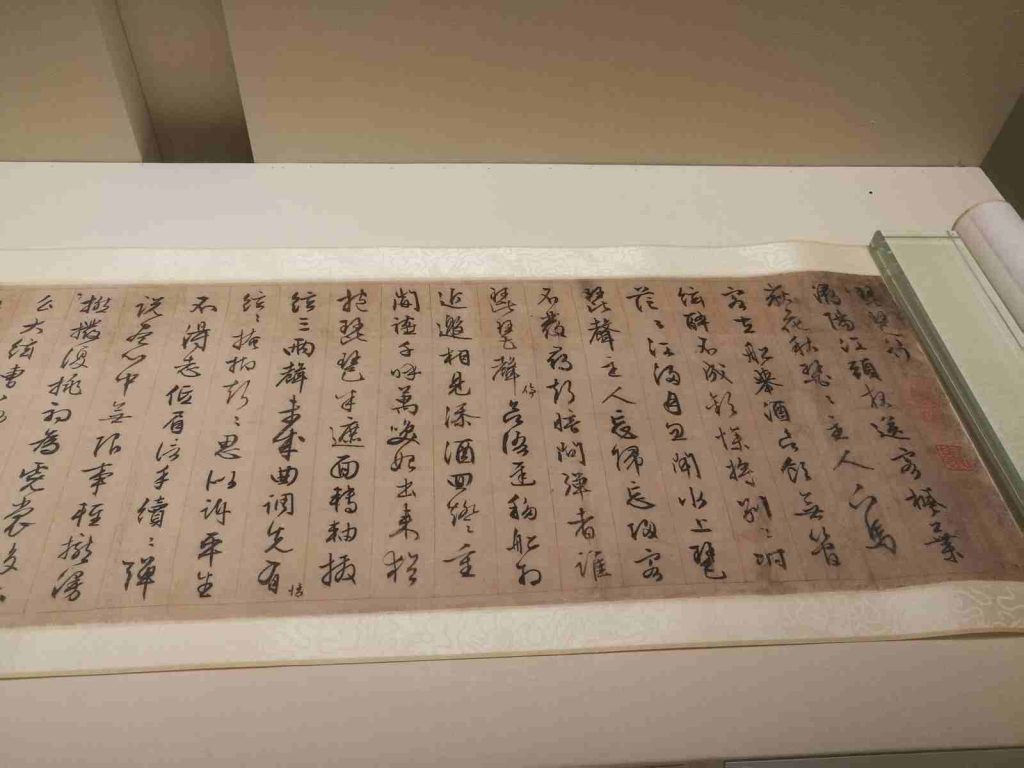 琵琶行
潯陽江頭夜送客楓葉
荻花秋瑟〻主人下馬
客在船舉酒欲飲無管
絃醉不成歡慘將別〻時
茫〻江浸月忽聞水上琵
琶聲主人忘歸忘歸客
不發尋聲暗問彈者誰
琵琶聲停欲語遲移船相
近邀相見添酒回燈重
開筵千呼萬喚始出來猶
抱琵琶半遮面轉軸撥
絃三兩聲未成曲調先有情
絃〻掩抑聲〻思似訴平生
不得志低眉信手續〻彈
說盡心中無限事輕攏漫
撚撥復挑初為霓裳後六
么大絃嘈